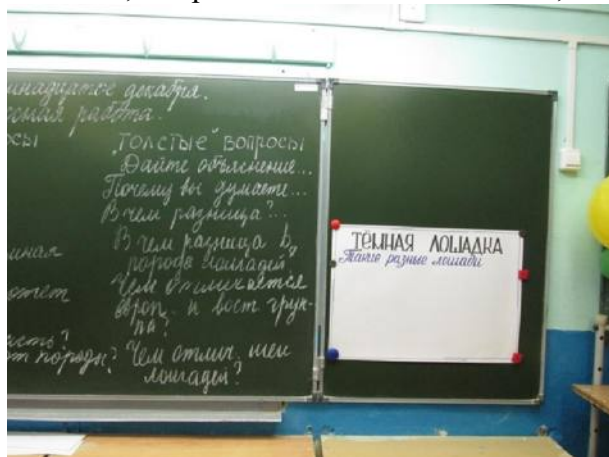 надцатое декабря.
работа.
"Толстые" вопросы
Дайте объяснение...
Почему вы думаете...
В чем разница?..
В чем разница в
породе лошадей?
Чем отличается
европ. и вост груп-
па?
Чем отлич. шеи
лошадей?
сы
может
ость?
от породы?
ТЁМНАЯ ЛОШАДКА
Такие разные лошади